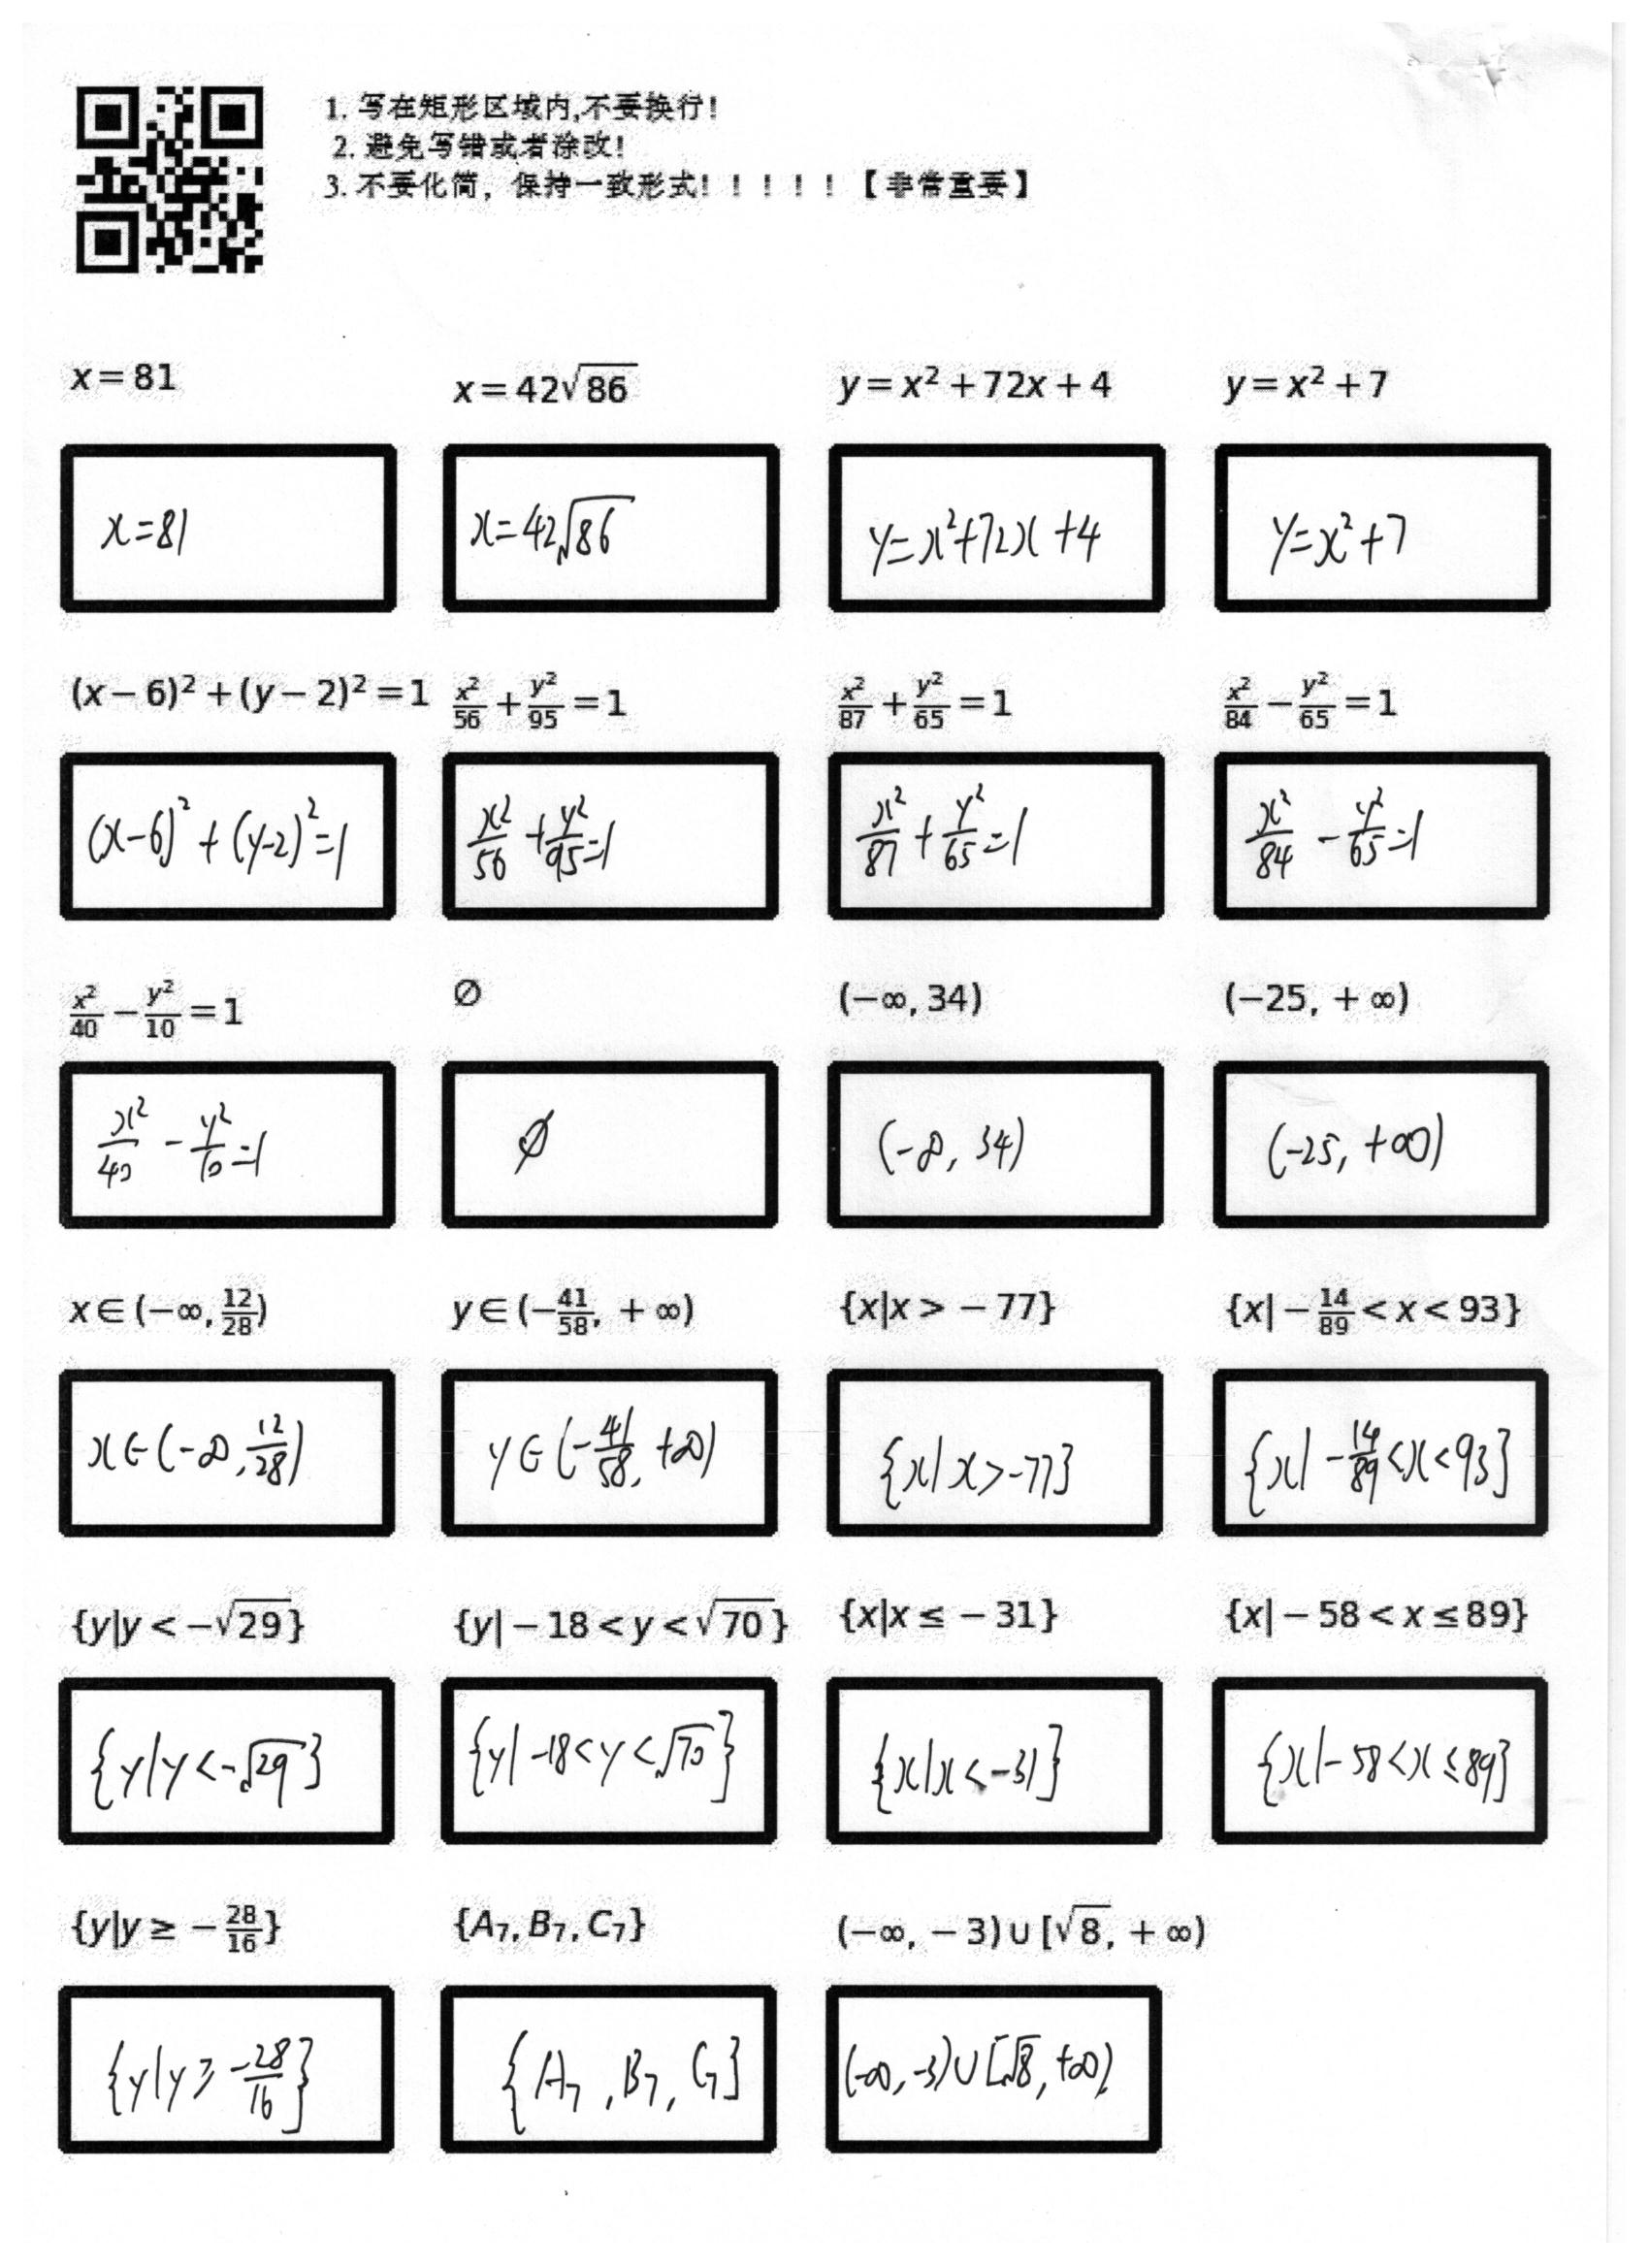 1. 写在矩形区域内,不要换行!
2. 避免写错或者涂改!
3. 不要化简，保持一致形式！！！！！【非常重要】
x = 81   x = 42√86   y = x² + 72x + 4   y = x² + 7
x = 81   x = 42√86   y = x² + 72x + 4   y = x² + 7
(x − 6)² + (y − 2)² = 1   x²/56 + y²/95 = 1   x²/87 + y²/65 = 1   x²/84 − y²/65 = 1
(x − 6)² + (y − 2)² = 1   x²/56 + y²/95 = 1   x²/87 + y²/65 = 1   x²/84 − y²/65 = 1
x²/40 − y²/10 = 1   ∅   (−∞, 34)   (−25, +∞)
x²/40 − y²/10 = 1   ∅   (−∞, 34)   (−25, +∞)
x ∈ (−∞, 12/28)   y ∈ (−41/58, +∞)   {x|x > −77}   {x|−14/89 < x < 93}
x ∈ (−∞, 12/28)   y ∈ (−41/58, +∞)   {x|x > −77}   {x|−14/89 < x < 93}
{y|y < −√29}   {y|−18 < y < √70}   {x|x ≤ −31}   {x|−58 < x ≤ 89}
{y|y < −√29}   {y|−18 < y < √70}   {x|x ≤ −31}   {x|−58 < x ≤ 89}
{y|y ≥ −28/16}   {A₇, B₇, C₇}   (−∞, −3) ∪ [√8, +∞)
{y|y ≥ −28/16}   {A₇, B₇, C₇}   (−∞, −3) ∪ [√8, +∞)